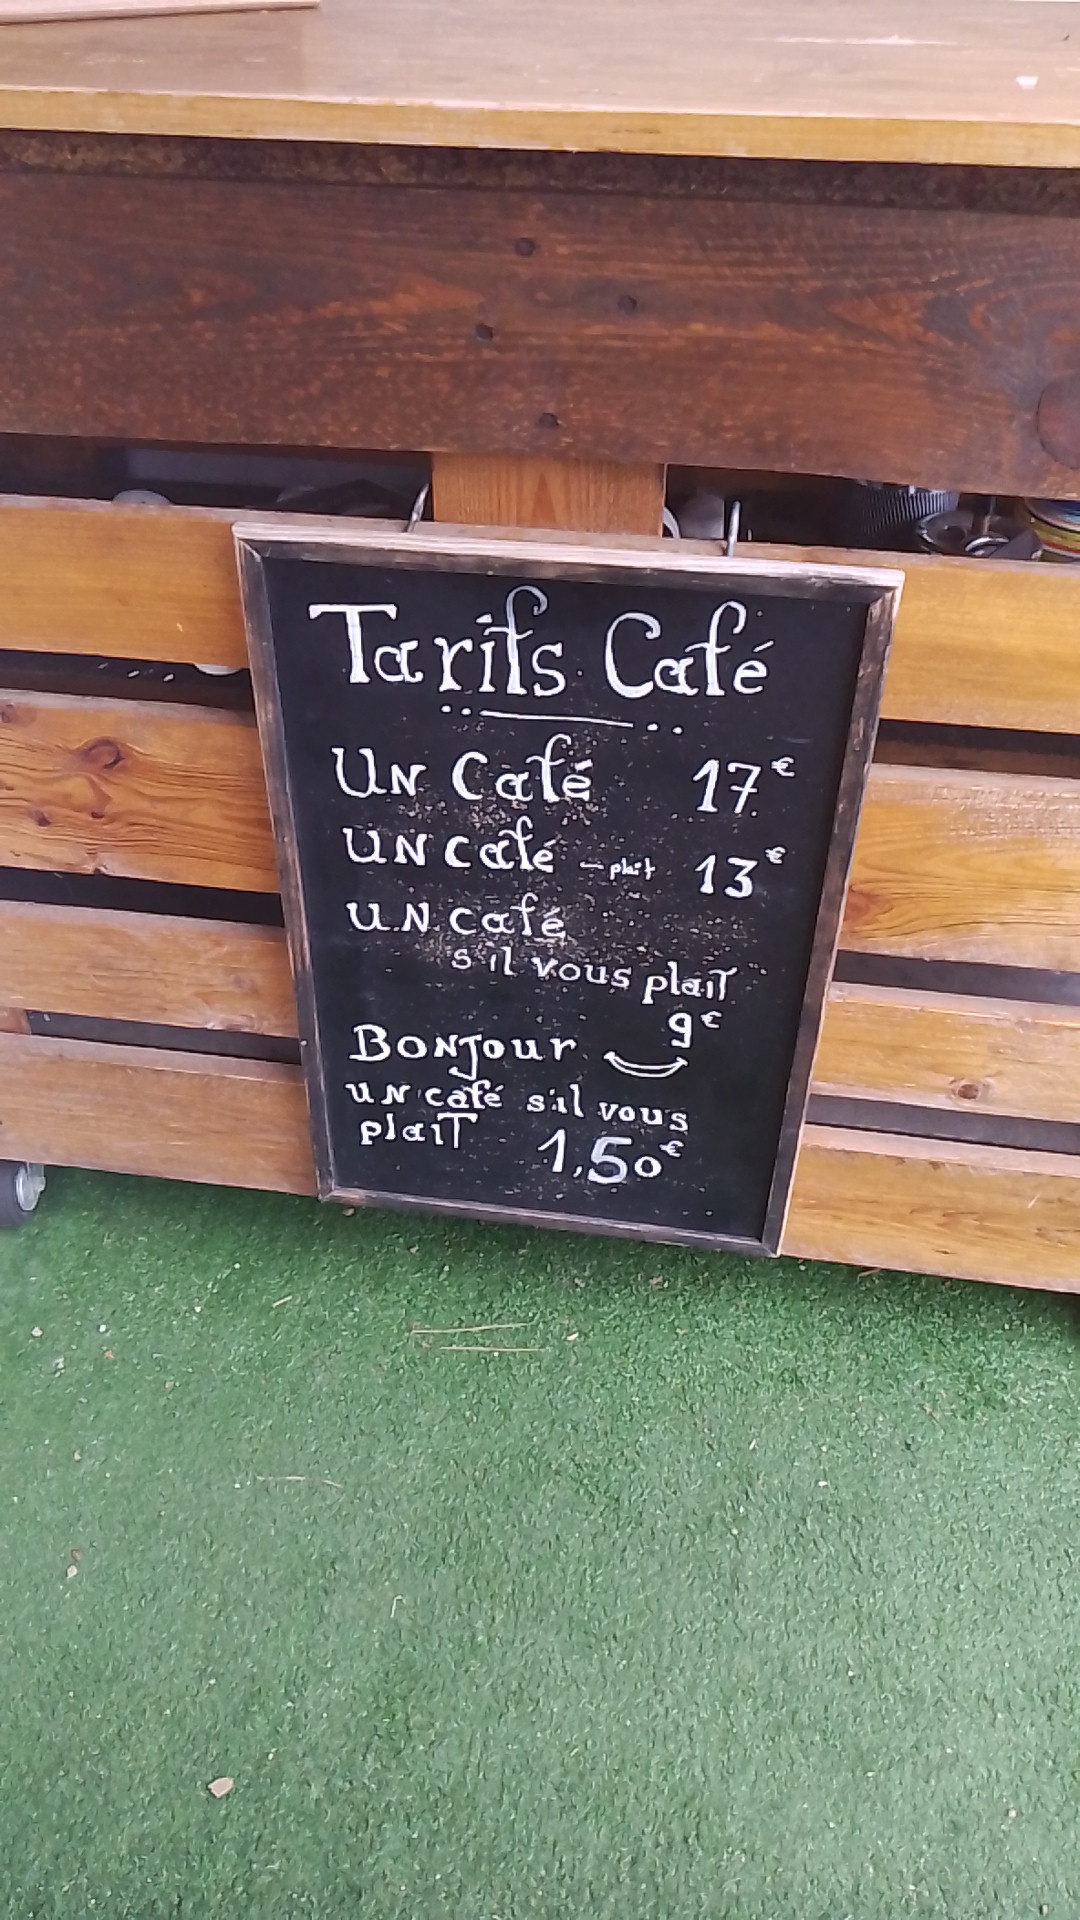 Tarifs Café
Un Café 17€
Un café - plait 13€
Un café
s'il vous plaiT
9€
Bonjour
un café s'il vous
plaiT 1,50€